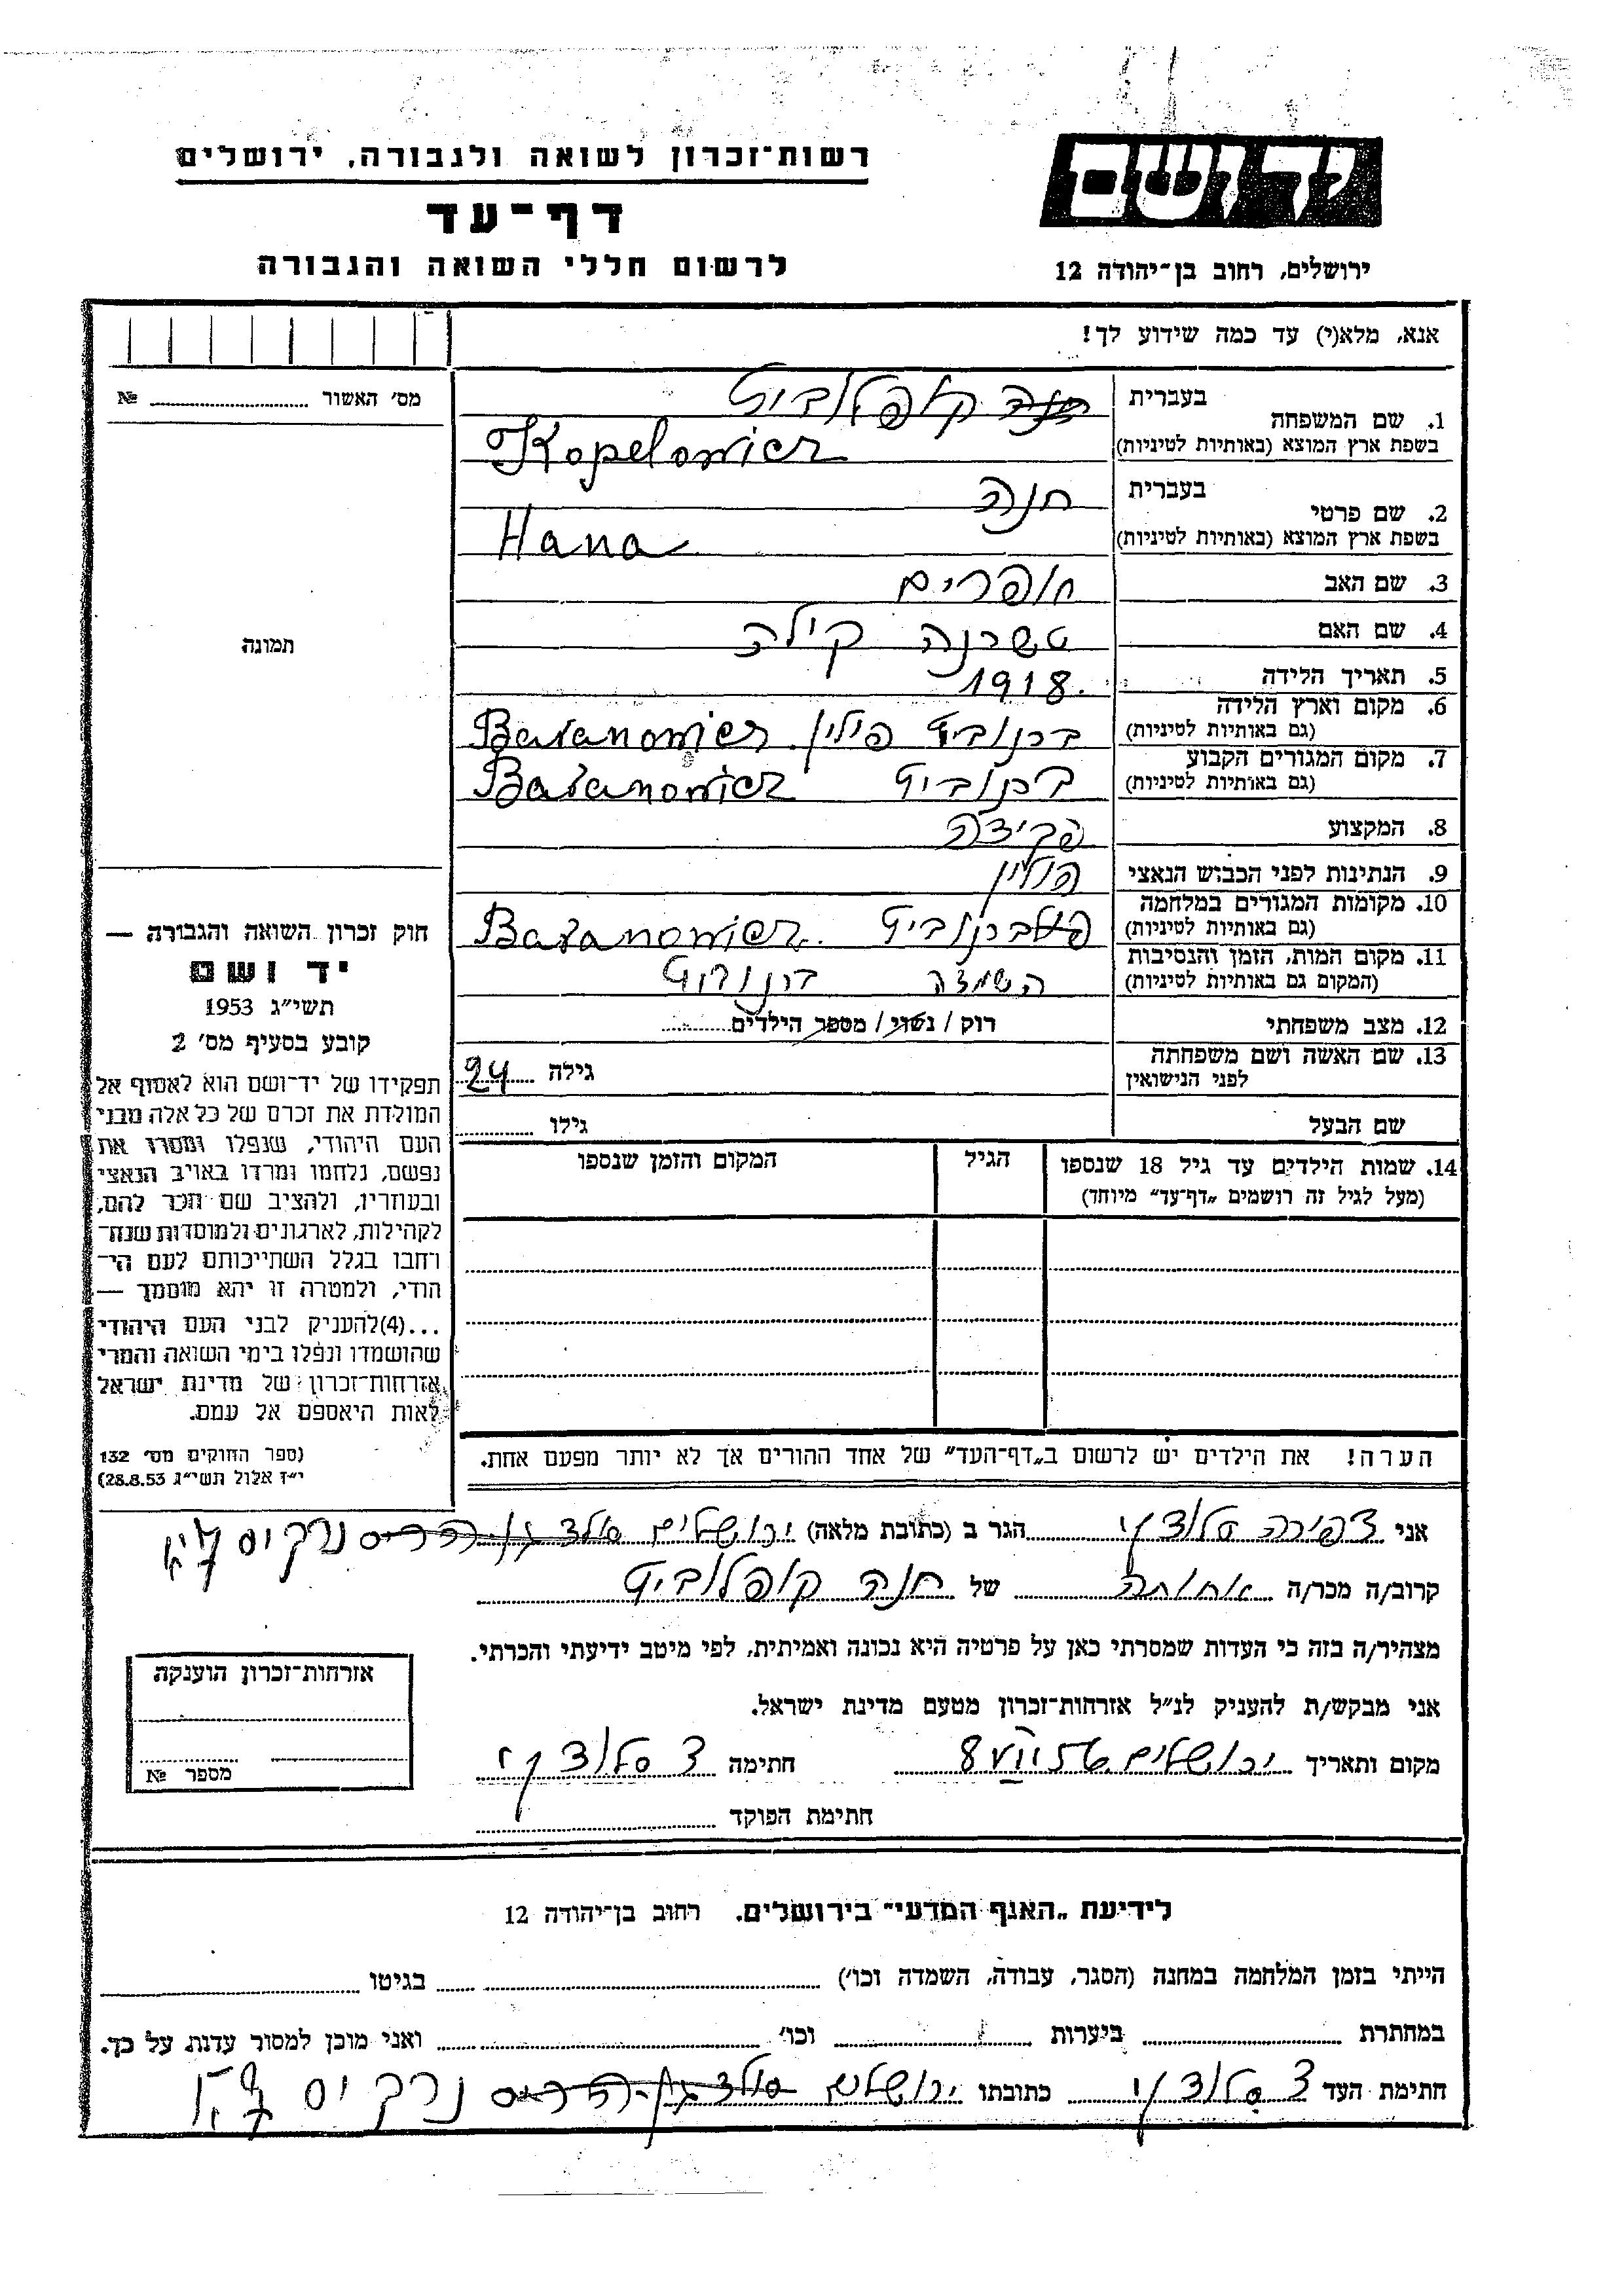 רשות־זכרון לשואה ולגבורה, ירושלים
דף־עד
לרשום חללי השואה והגבורה
יד ושם
ירושלים, רחוב בן־יהודה 12
אנא, מלא(י) עד כמה שידוע לך!
מס' האשור № 
תמונה
חוק זכרון השואה והגבורה —
יד ושם
תשי״ג 1953
קובע בסעיף מס' 2
תפקידו של יד־ושם הוא לאסוף אל
המולדת את זכרם של כל אלה מבני
העם היהודי, שנפלו ומסרו את
נפשם, נלחמו ומרדו באויב הנאצי
ובעוזריו, ולהציב שם וזכר להם,
לקהילות, לארגונים ולמוסדות שנח־
רחבו בגלל השתייכותם לעם הי־
הודי, ולמטרה זו יהא מוסמך —
...(4)להעניק לבני העם היהודי
שהושמדו ונפלו בימי השואה והמרי
אזרחות־זכרון של מדינת ישראל
לאות היאספם אל עמם.
(ספר החוקים מס' 132
י״ז אלול תשי״ג 28.8.53)
1. שם המשפחה בעברית חנה קופלוביץ
בשפת ארץ המוצא (באותיות לטיניות) Kopelowicz
2. שם פרטי בעברית חנה
בשפת ארץ המוצא (באותיות לטיניות) Hana
3. שם האב
4. שם האם
5. תאריך הלידה 1918
6. מקום וארץ הלידה (גם באותיות לטיניות) ברנוביץ פולין. Baranowicz
7. מקום המגורים הקבוע (גם באותיות לטיניות) ברנוביץ Baranowicz
8. המקצוע
9. הנתינות לפני הכבוש הנאצי פולין
10. מקומות המגורים במלחמה (גם באותיות לטיניות) ברנוביץ Baranowicz.
11. מקום המות, הזמן והנסיבות (המקום גם באותיות לטיניות) השמדה
12. מצב משפחתי רוק / נשוי / מספר הילדים
13. שם האשה ושם משפחתה לפני הנישואין גילה 24
שם הבעל גילו
14. שמות הילדים עד גיל 18 שנספו הגיל המקום והזמן שנספו
(מעל לגיל זה רושמים „דף־עד״ מיוחד)
הערה! את הילדים יש לרשום ב„דף־העד״ של אחד ההורים אך לא יותר מפעם אחת.
אני צפירה סלוצקי הגר ב (כתובת מלאה) ירושלים נרקיס
קרוב/ה מכר/ה אחותה של חנה קופלוביץ
מצהיר/ה בזה כי העדות שמסרתי כאן על פרטיה היא נכונה ואמיתית, לפי מיטב ידיעתי והכרתי.
אני מבקש/ת להעניק לנ״ל אזרחות־זכרון מטעם מדינת ישראל.
מקום ותאריך ירושלים חתימה צ סלוצקי
חתימת הפוקד
אזרחות־זכרון הוענקה
מספר №
לידיעת „האגף המדעי״ בירושלים. רחוב בן־יהודה 12
הייתי בזמן המלחמה במחנה (הסגר, עבודה, השמדה וכו') בגיטו
במחתרת ביערות וכו' ואני מוכן למסור עדות על כך.
חתימת העד צ סלוצקי כתובתו ירושלים נרקיס